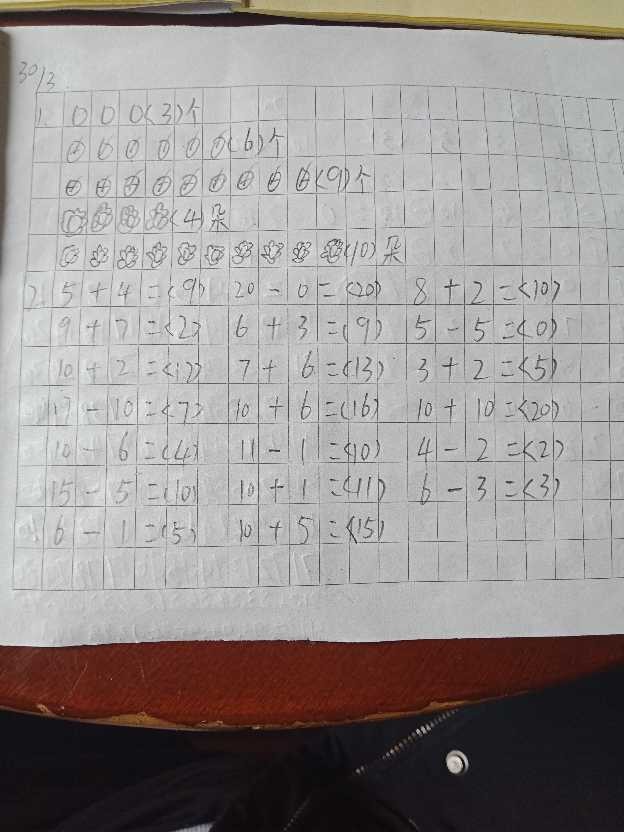 30/3
1. (3)个
(6)个
(9)个
(4)朵
(10)朵
2. 5+4=(9) 20-0=(20) 8+2=(10)
9+7=(2) 6+3=(9) 5-5=(0)
10+2=(12) 7+6=(13) 3+2=(5)
17-10=(7) 10+6=(16) 10+10=(20)
10-6=(4) 11-1=(10) 4-2=(2)
15-5=(10) 10+1=(11) 6-3=(3)
6-1=(5) 10+5=(15)